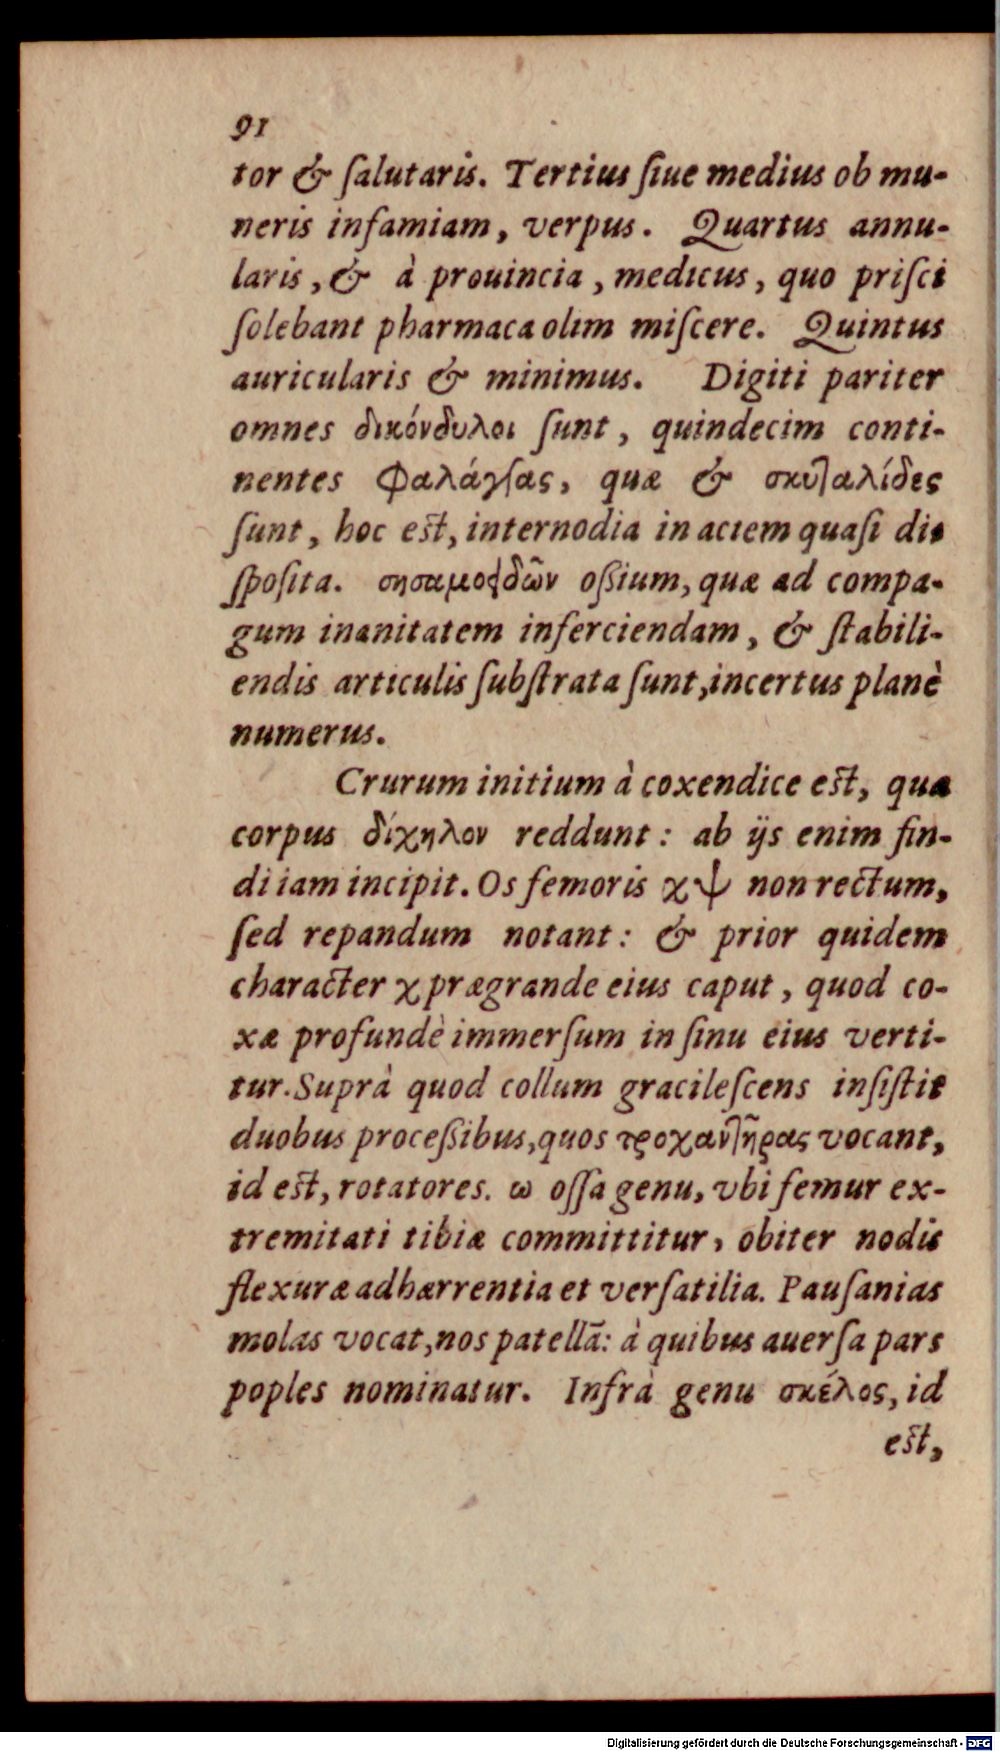 91
tor & ſalutaris. Tertius ſiue medius ob mu-
neris infamiam, verpus. Quartus annu-
laris, & à prouincia, medicus, quo priſci
ſolebant pharmaca olim miſcere. Quintus
auricularis & minimus. Digiti pariter
omnes δικόνδυλοι ſunt, quindecim conti-
nentes Φαλάγγας, quæ & σκυταλίδες
ſunt, hoc eſt, internodia in aciem quaſi di-
ſpoſita. σησαμοειδῶν oßium, quæ ad compa-
gum inanitatem inferciendam, & ſtabili-
endis articulis ſubſtrata ſunt, incertus planè
numerus.
Crurum initium à coxendice eſt, quæ
corpus δίχηλον reddunt: ab ijs enim fin-
di iam incipit. Os femoris χψ non rectum,
ſed repandum notant: & prior quidem
character χ prægrande eius caput, quod co-
xæ profundè immerſum in ſinu eius verti-
tur. Suprà quod collum gracileſcens inſiſtit
duobus proceßibus, quos τροχαντῆρας vocant,
id eſt, rotatores. ω oſſa genu, vbi femur ex-
tremitati tibiæ committitur, obiter nodis
flexuræ adhærrentia et verſatilia. Pauſanias
molas vocat, nos patellã: à quibus auerſa pars
poples nominatur. Infrà genu σκέλος, id
eſt,
Digitalisierung gefördert durch die Deutsche Forschungsgemeinschaft - DFG